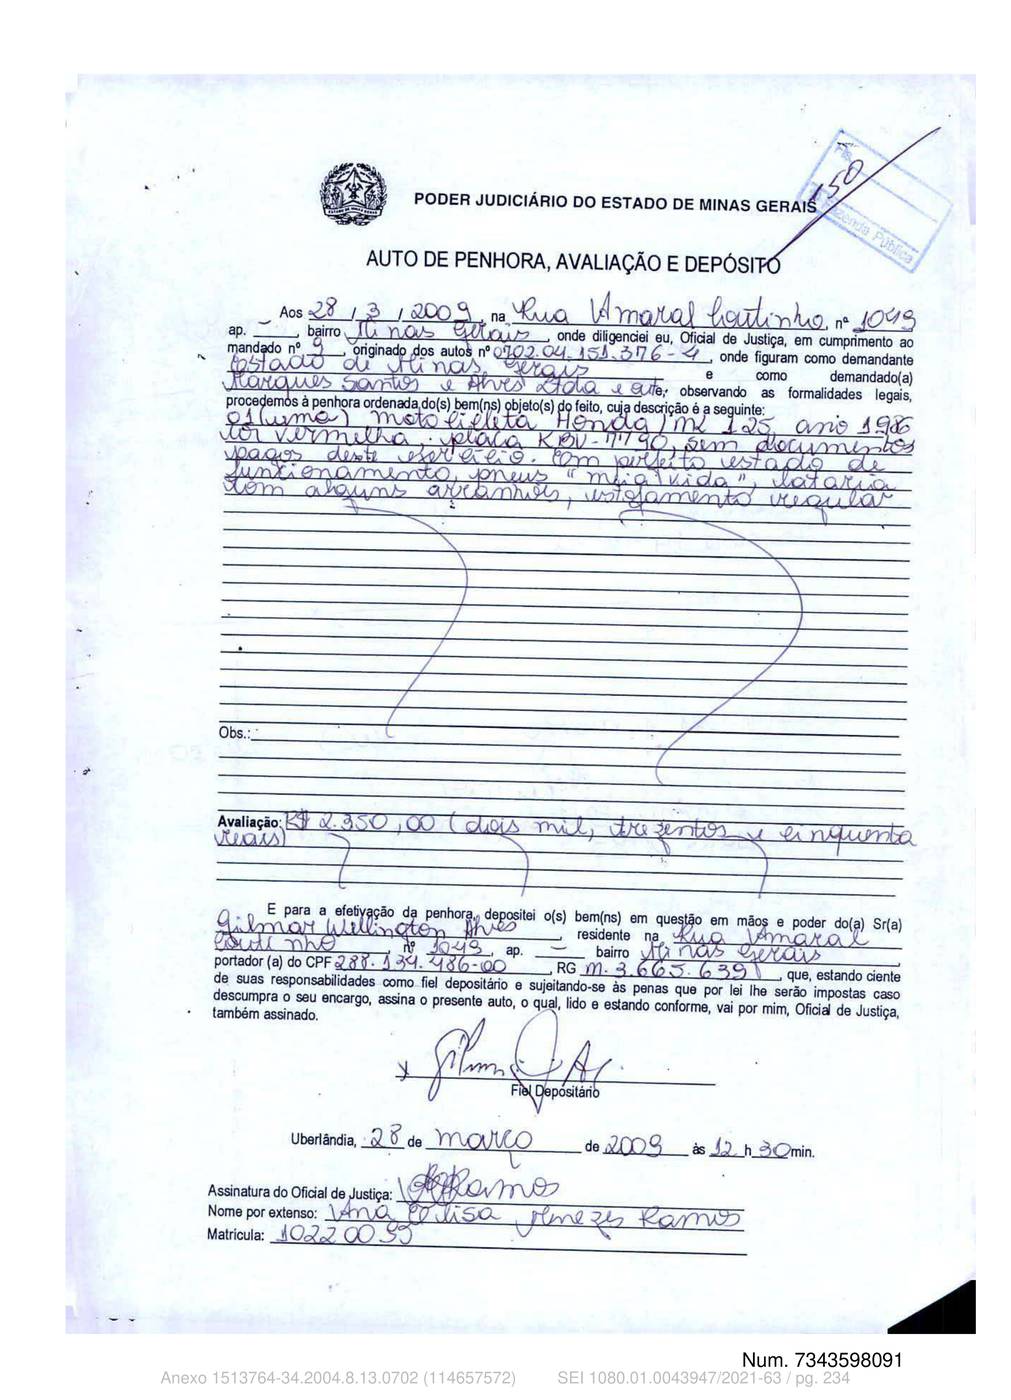 Fls.
150
Fazenda Pública
PODER JUDICIÁRIO DO ESTADO DE MINAS GERAIS
AUTO DE PENHORA, AVALIAÇÃO E DEPÓSITO
Aos 28 / 3 / 2009, na Rua Amaral Coutinho, nº 1049
ap. — , bairro Minas Gerais , onde diligenciei eu, Oficial de Justiça, em cumprimento ao
mandado nº 9 , originado dos autos nº 0702.04.151.376-4 , onde figuram como demandante
Estado de Minas Gerais e como demandado(a)
Marques Santos e Alves Ltda e outro, observando as formalidades legais,
procedemos à penhora ordenada do(s) bem(ns) objeto(s) do feito, cuja descrição é a seguinte:
01 (uma) motocicleta Honda / ML 125, ano 1986
cor vermelha, placa KBV-7790, sem documentos
pagos deste exercício. Em perfeito estado de
funcionamento, pneus "meia vida", lataria
com alguns arranhões, estofamento regular
Obs.:
Avaliação: R$ 2.350,00 (dois mil, trezentos e cinquenta
reais)
E para a efetivação da penhora, depositei o(s) bem(ns) em questão em mãos e poder do(a) Sr(a)
Gilmar Wellington Alves , residente na Rua Amaral
Coutinho , nº 1049 , ap. — bairro Minas Gerais ,
portador (a) do CPF 288.134.486-00 , RG M.3.665.639 , que, estando ciente
de suas responsabilidades como fiel depositário e sujeitando-se às penas que por lei lhe serão impostas caso
descumpra o seu encargo, assina o presente auto, o qual, lido e estando conforme, vai por mim, Oficial de Justiça,
também assinado.
x
Fiel Depositário
Uberlândia, 28 de março de 2009 às 12 h 30 min.
Assinatura do Oficial de Justiça: Ramos
Nome por extenso: Ana Elisa Menezes Ramos
Matrícula: 10220093
Num. 7343598091
Anexo 1513764-34.2004.8.13.0702 (114657572) SEI 1080.01.0043947/2021-63 / pg. 234